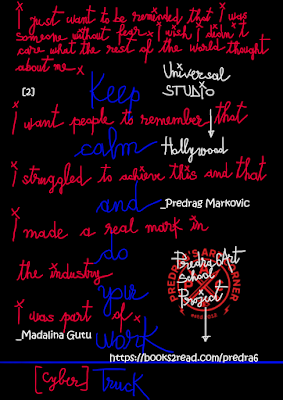 I just want to be reminded that I was
someone without fear. I wish I didn't
care what the rest of the world thought
about me.
Universal
STUDIO
[2]
Keep
I want people to remember that
calm
Hollywood
I struggled to achieve this and that
and
_Predrag Markovic
I made a real mark in
do
Predra6Art
School
Project
PREDRA6 ART CORNER
the industry
your
I was part of
_Madalina Gutu
work
https://books2read.com/predra6
[Cyber] Truck